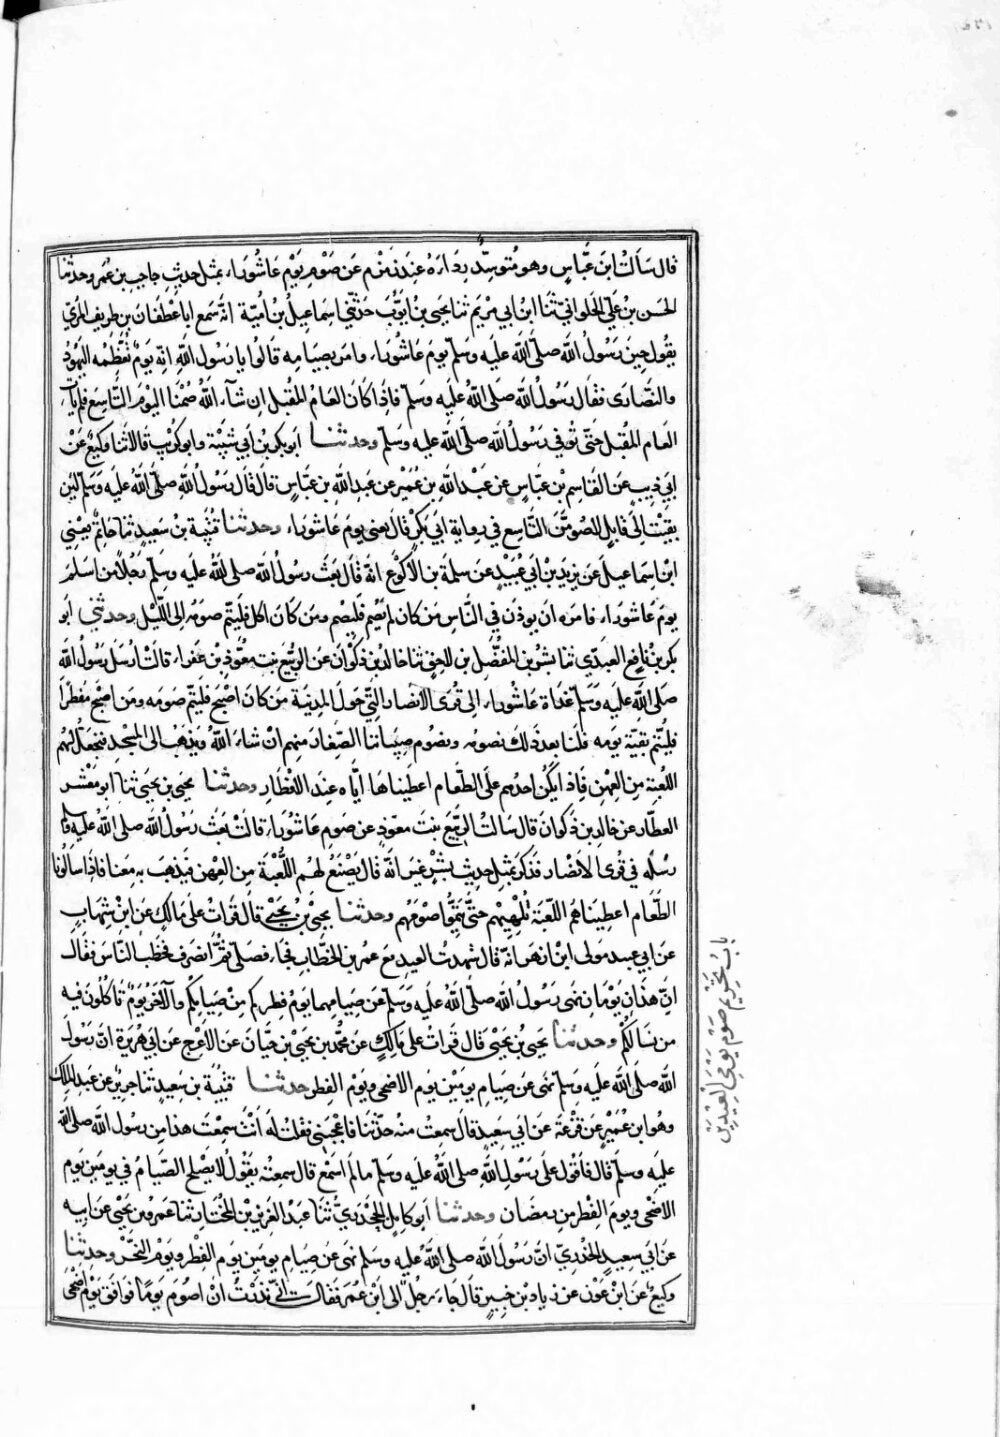 قال سَاَلتُ ابنَ عَبَّاسٍ وهو مُتَوسِّد رِدَاءهُ عِنِدَ زَمزَم عَن صَوْمِ يَوْمِ عَاشُورَاء بمثلِ حديثِ حاجِبِ بن عُمَر وحدثنا
الحَسن بنُ عَليّ الحَلواني ثَنَا ابنُ ابي مرْيَم ثنا يحيى بنُ ايوُّبَ حَدّثني اسمَاعيلُ بنُ اُميّة انّهُ سَمع ابا غَطَفَان بن طريف المُرّي
يقُول حِينَ رَسُولُ الله صلّى اللَّه عَليه وسَلّم يومَ عَاشُورَاء وامَر بصِيامِه قَالُوا يا رَسُول اللَّهِ انّه يَومٌ تُعَظِّمه اليَهُودُ
والنّصَارَى فقَال رَسُولُ اللَّه صَلّى اللَّهُ عَليه وَسَلّم فاِذَا كَانَ العَامُ المُقبل ان شآءَ اللَّهُ صُمْنَا اليَوْمَ التَّاسِعَ فلم يَأتِ
العَام المُقبلُ حَتّى تُوفي رَسُولُ اللَّه صلّى اللَّهُ عليه وَسَلّم وحدثنا ابُو بكر بنُ ابي شَيبَة وابو كُرَيب قَالَا ثَنا وكيعٌ عَنْ
ابي ذيبٍ عَن القَاسِم بن عَبّاسٍ عَن عَبْد اللَّهِ بن عُمَيْر عَن عَبدِ اللَّهِ بن عَبّاسٍ قَال قَال رَسُولُ اللَّهِ صَلّى اللَّهُ عليه وَسَلّم لَئِن
بقيتُ اِلَى قَابِلٍ لاصُومَنَّ التَّاسِع في روايةِ ابي بَكرٍ قَال يَعني يومَ عَاشورَاء وحدثنا قتَيبة بنُ سَعيدٍ ثنا حَاتمٌ يعْني
ابن اسمَاعيل عَن يزيد بن ابي عُبَيْدٍ عَن سَلمة بن الاكوَع انّه قَال بَعَثَ رسُولُ اللَّه صلى اللَّهُ عليه وَسَلّم رَجُلاً من اسْلَمَ
يومَ عَاشورَاء فامَره ان يوذن في النَّاس مَن كان لم يَصُم فليَصُم ومَن كَانَ اكل فليُتمّ صومَهُ الى اللّيْل وحدثني ابُو
بكر بنُ نافع العَبديّ ثنا بشر بن المُفضّل بن لاحقٍ ثنا خالد بن ذكوان عَن الرُّبيّع بنت معوّذ بن عَفراء قالتْ ارْسَل رَسُولُ اللَّه
صَلى اللَّهُ عليه وَسَلّم غداةَ عَاشُوراء الى قُرَى الانصار التي حَولَ المدِينَة مَن كانَ اصْبَح فَليُتِمّ صَومَه ومَن اصْبَحَ مُفطرًا
فليُتم بقيّة يَومِه فكنا بعدَ ذَلك نصومُه ونصُوم صِبياننا الصّغَارَ منهم انْ شاء اللَّهُ ونذهَبُ الى المسجد فنجعَلُ لهُم
اللعبَة منَ العِهْن فَاِذا بكَى احدُهم عَلَى الطّعام اعطيناهَا ايّاه عند الافطار وحدثنا يحيى بن يحيى ثنا ابو مَعْشر
العطّار عن خالد بن ذكوان قال سَالتُ الرُّبيّع بنتَ معَوّذٍ عن صَومِ عَاشُورَاء قالتْ بَعَثَ رسُولُ اللَّه صلى اللَّهُ عليه وسلم
رُسُلَه في قرى الانصَار فذكَر بمثلِ حديثِ بشْرٍ غيرَ انّه قال ونصْنَعُ لهُم اللُّعْبَة مِنَ العِهن فنَذهَب به مَعَنا فاِذا سَألُونا
الطّعَام اعطينَاهم اللّعبَة تُلْهيْهم حتَّى يُتمّوا صَوْمَهُم وحدثنا يحيى بنُ يَحْيَى قَال قرأتُ عَلَى مَالكٍ عَن ابن شِهابٍ
عَن ابي عبيد مَولى ابن ازهَر انّه قال شهدتُ العِيد مَع عمَر بن الخطّاب فجَاء فصَلّى ثمّ انصَرف فخطبَ النّاسَ فقال
انّ هَذَانِ يَوْمَانِ نَهَى رَسُولُ اللَّهِ صلّى اللَّهُ عليه وَسَلم عَن صِيامِهما يومُ فطرِكم مِنْ صِيَامِكُم والآخَرُ يَومٌ تَأكلُونَ فيه
من نسككُم وحدثنا يحيى بنُ يَحيى قال قرأتُ على مَالكٍ عَن محمّد بن يحيَى بن حبّانَ عَن الاعْرَجِ عَن ابي هُرَيرَة انّ رَسُولَ
اللَّه صلى اللَّهُ عليه وسَلّم نَهَى عَن صِيَامِ يومَيْن يوم الاضحَى ويَوْم الفِطر حدثنا قتَيْبَة بنُ سَعيدٍ ثنا جَريرٌ عَن عَبد الملِك
وهُو ابن عُمَيْرٍ عَن قزعَة عَن ابي سَعيدٍ قال سَمعتُ منه حديثا فاعجَبَني فقلتُ له اَنتْ سَمِعْتَ هذا من رسُول اللَّه صلى اللَّه
عليه وسلم قال فاَقول على رَسُولِ اللَّهِ صلى اللَّهُ عليه وسلم ما لم اسْمع قال سمعتُه يَقُولُ لا يَصْلح الصّيَامُ في يومَين يَوم
الاضْحى ويومَ الفِطر من رمضَان وحدثنا اَبو كامل الجَحدَريّ ثَنا عَبدُ العَزيز بن المُختَار ثنا عَمرو بن يَحْيَى عَن ابيه
عَن ابي سَعيدٍ الخدريّ انّ رَسُولَ اللَّه صلى اللَّهُ عليه وَسَلم نهى عن صِيَام يومَين يَوم الفِطر ويَوْم النّحْر وحدثنا
وكيعٌ عَن ابن عَوْن عن زياد بن جُبيرٍ قال جاء رجُلٌ الى ابن عُمَر فقال اني نذَرْتُ انْ اصُومَ يَومًا فوَافق يَوْمَ اضْحَى
بابُ تحريم صَوْم يَوْمَي العِيْدَيْن